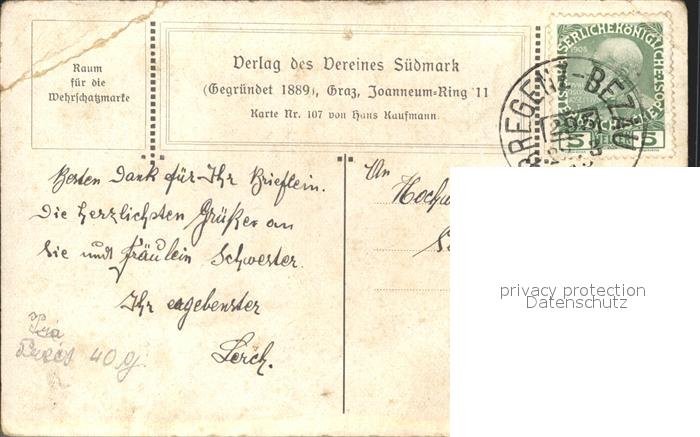 Raum
für die
Wehrschatzmarke
Verlag des Vereines Südmark
(Gegründet 1889), Graz, Joanneum-Ring 11
Karte Nr. 107 von Hans Kaufmann.
1908
5 5
BREGENZ-BEZAU
Besten Dank für Ihr Brieflein.
Die herzlichsten Grüße an
Sie und Fräulein Schwester.
Ihr ergebenster
Lerch.
An
Hochw
40 g.
privacy protection
Datenschutz